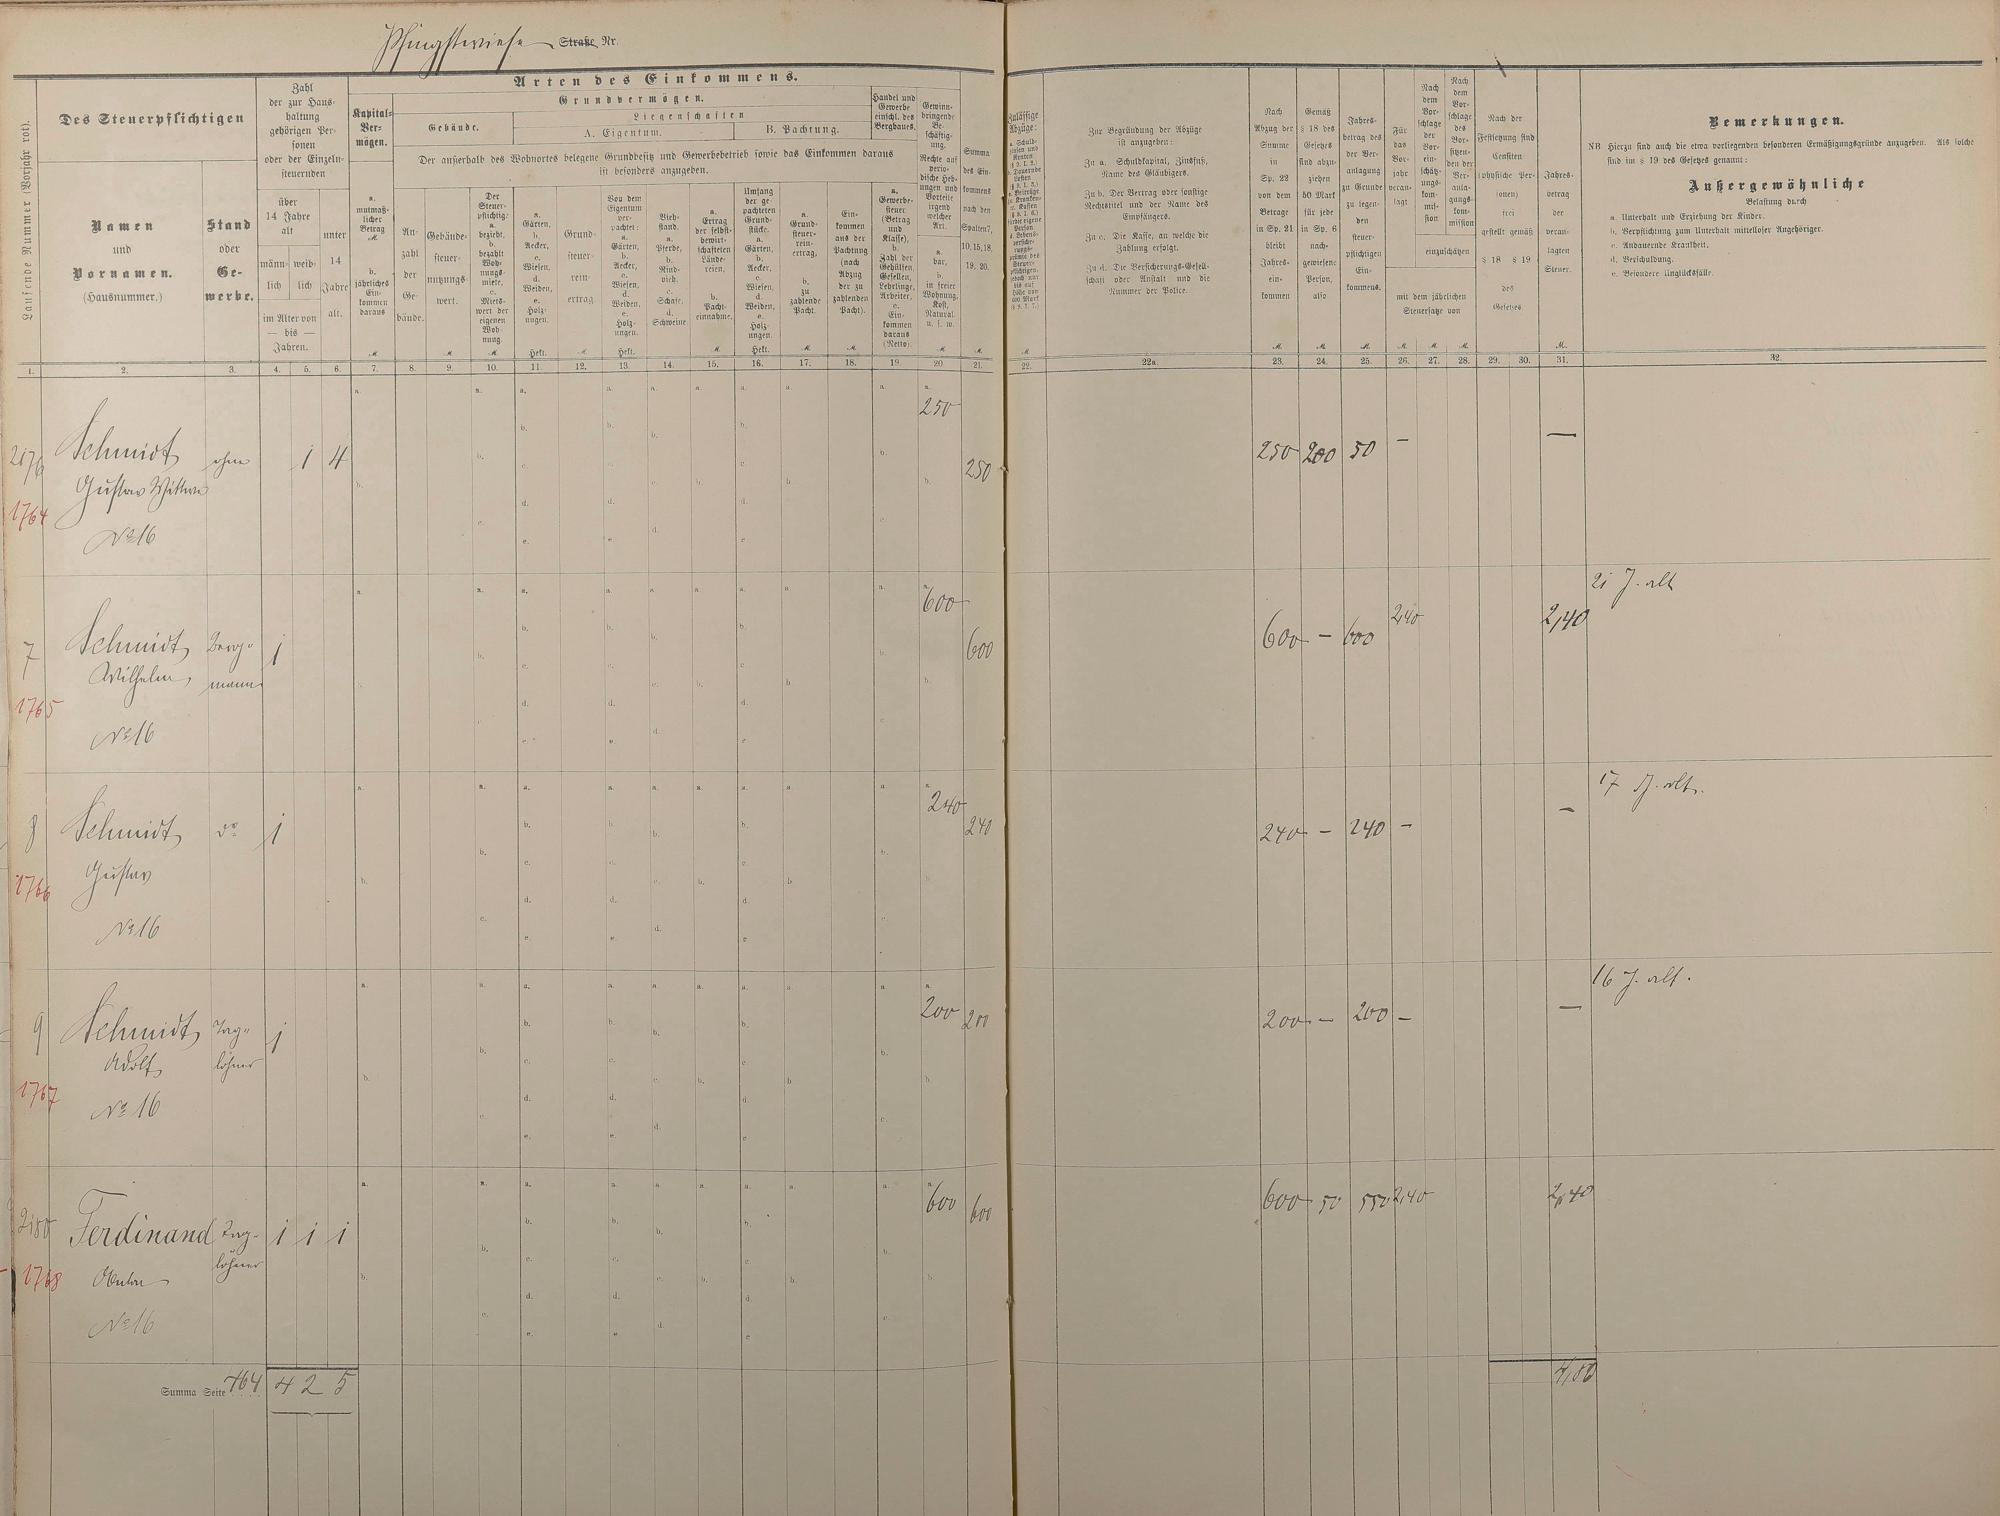 Pfingstwiese Straße Nr.
Laufende Nummer (Vorjahr rot).
Des Steuerpflichtigen
Namen
und
Vornamen.
(Hausnummer.)
Stand
oder
Ge-
werbe.
Zahl
der zur Haus-
haltung
gehörigen Per-
sonen
oder der Einzeln-
steuernden
über
14 Jahre
alt
männ-
lich
weib-
lich
unter
14
Jahre
alt.
im Alter von
— bis —
Jahren.
Arten des Einkommens.
Kapital-
Ver-
mögen.
a.
mutmaß-
licher
Betrag
M
b.
jährliches
Ein-
kommen
daraus
M
Grundvermögen.
Gebäude.
Liegenschaften
A. Eigentum.
B. Pachtung.
Der außerhalb des Wohnortes belegene Grundbesitz und Gewerbebetrieb sowie das Einkommen daraus
ist besonders anzugeben.
An-
zahl
der
Ge-
bäude.
Gebäude-
steuer-
nutzungs-
wert.
M
Der
Steuer-
pflichtig:
a.
bezieht,
b.
bezahlt
Woh-
nungs-
miete,
c.
Miets-
wert der
eigenen
Woh-
nung.
M
a.
Gärten,
b.
Aecker,
c.
Wiesen,
d.
Weiden,
e.
Holz-
ungen.
Hekt.
Grund-
steuer-
rein-
ertrag.
M
Von dem
Eigentum
ver-
pachtet:
a.
Gärten,
b.
Aecker,
c.
Wiesen,
d.
Weiden,
e.
Holz-
ungen.
Hekt.
Vieh-
stand.
a.
Pferde,
b.
Rind-
vieh.
c.
Schafe,
d.
Schweine.
a.
Ertrag
der selbst-
bewirt-
schafteten
Lände-
reien,
b.
Pacht-
einnahme.
M
Umfang
der ge-
pachteten
Grund-
stücke.
a.
Gärten,
b.
Aecker,
c.
Wiesen,
d.
Weiden,
e.
Holz-
ungen.
Hekt.
a.
Grund-
steuer-
rein-
ertrag,
b.
zu
zahlende
Pacht.
M
Ein-
kommen
aus der
Pachtung
(nach
Abzug
der zu
zahlenden
Pacht).
M
Handel und
Gewerbe
einschl. des
Bergbaues.
a.
Gewerbe-
steuer
(Betrag
und
Klasse),
b.
Zahl der
Gehülfen,
Gesellen,
Lehrlinge,
Arbeiter,
c.
Ein-
kommen
daraus
(Netto).
Gewinn-
bringende
Be-
schäftig-
ung.
Rechte auf
perio-
dische Heb-
ungen und
Vorteile
irgend
welcher
Art.
a.
bar,
b.
in freier
Wohnung,
Kost,
Natural.
u. s. w.
M
Summa
des Ein-
kommens
nach den
Spalten 7,
10, 15, 18,
19, 20.
M
Zulässige
Abzüge:
M
Zur Begründung der Abzüge
ist anzugeben:
Zu a. Schuldkapital, Zinsfuß,
Name des Gläubigers.
Zu b. Der Vertrag oder sonstige
Rechtstitel und der Name des
Empfängers.
Zu c. Die Kasse, an welche die
Zahlung erfolgt.
Zu d. Die Versicherungs-Gesell-
schaft oder Anstalt und die
Nummer der Police.
Nach
Abzug der
Summe
in
Sp. 22
von dem
Betrage
in Sp. 21
bleibt
Jahres-
ein-
kommen
M
Gemäß
§ 18 des
Gesetzes
sind abzu-
ziehen
50 Mark
für jede
in Sp. 6
nach-
gewiesene
Person,
also
M
Jahres-
betrag des
der Ver-
anlagung
zu Grunde
zu legen-
den
steuer-
pflichtigen
Ein-
kommens.
M
Für
das
Vor-
jahr
veran-
lagt
M
Nach
dem
Vor-
schlage
der
Vor-
ein-
schätz-
ungs-
kom-
mis-
sion
Nach
dem
Vor-
schlage
des
Vor-
sitzen-
den der
Ver-
anla-
gungs-
kom-
mission
einzuschätzen
mit dem jährlichen
Steuersatze von
M M
Nach der
Festsetzung sind
Censiten
(physische Per-
sonen)
frei
gestellt gemäß
§ 18 § 19
des
Gesetzes.
Jahres-
betrag
der
veran-
lagten
Steuer.
M.
Bemerkungen.
NB Hierzu sind auch die etwa vorliegenden besonderen Ermäßigungsgründe anzugeben. Als solche
sind im § 19 des Gesetzes genannt:
Außergewöhnliche
Belastung durch
a. Unterhalt und Erziehung der Kinder.
b. Verpflichtung zum Unterhalt mittelloser Angehöriger.
c. Andauernde Krankheit.
d. Verschuldung.
e. Besondere Unglücksfälle.
1. 2. 3. 4. 5. 6. 7. 8. 9. 10. 11. 12. 13. 14. 15. 16. 17. 18. 19. 20 21. 22. 22a. 23. 24. 25. 26. 27. 28. 29. 30. 31. 32.
2176 Schmidt ohne 1 4 250 250 250 200 50 — —
Gustav Wittwe
1764
No 16
7 Schmidt Berg- 1 600 600 600 — 600 2,40 2,40 21 J. alt
Wilhelm mann
1765
No 16
8 Schmidt do 1 240 240 240 — 240 — — 17 J. alt.
Gustav
1766
No 16
9 Schmidt Tag- 1 200 200 200 — 200 — — 16 J. alt.
Adolf löhner
1767
No 16
2180 Ferdinand Tag- 1 1 1 600 600 600 50 550 2,40 2,40
löhner
1768
Anton
No 16
Summa Seite 464 4 2 5 4,80